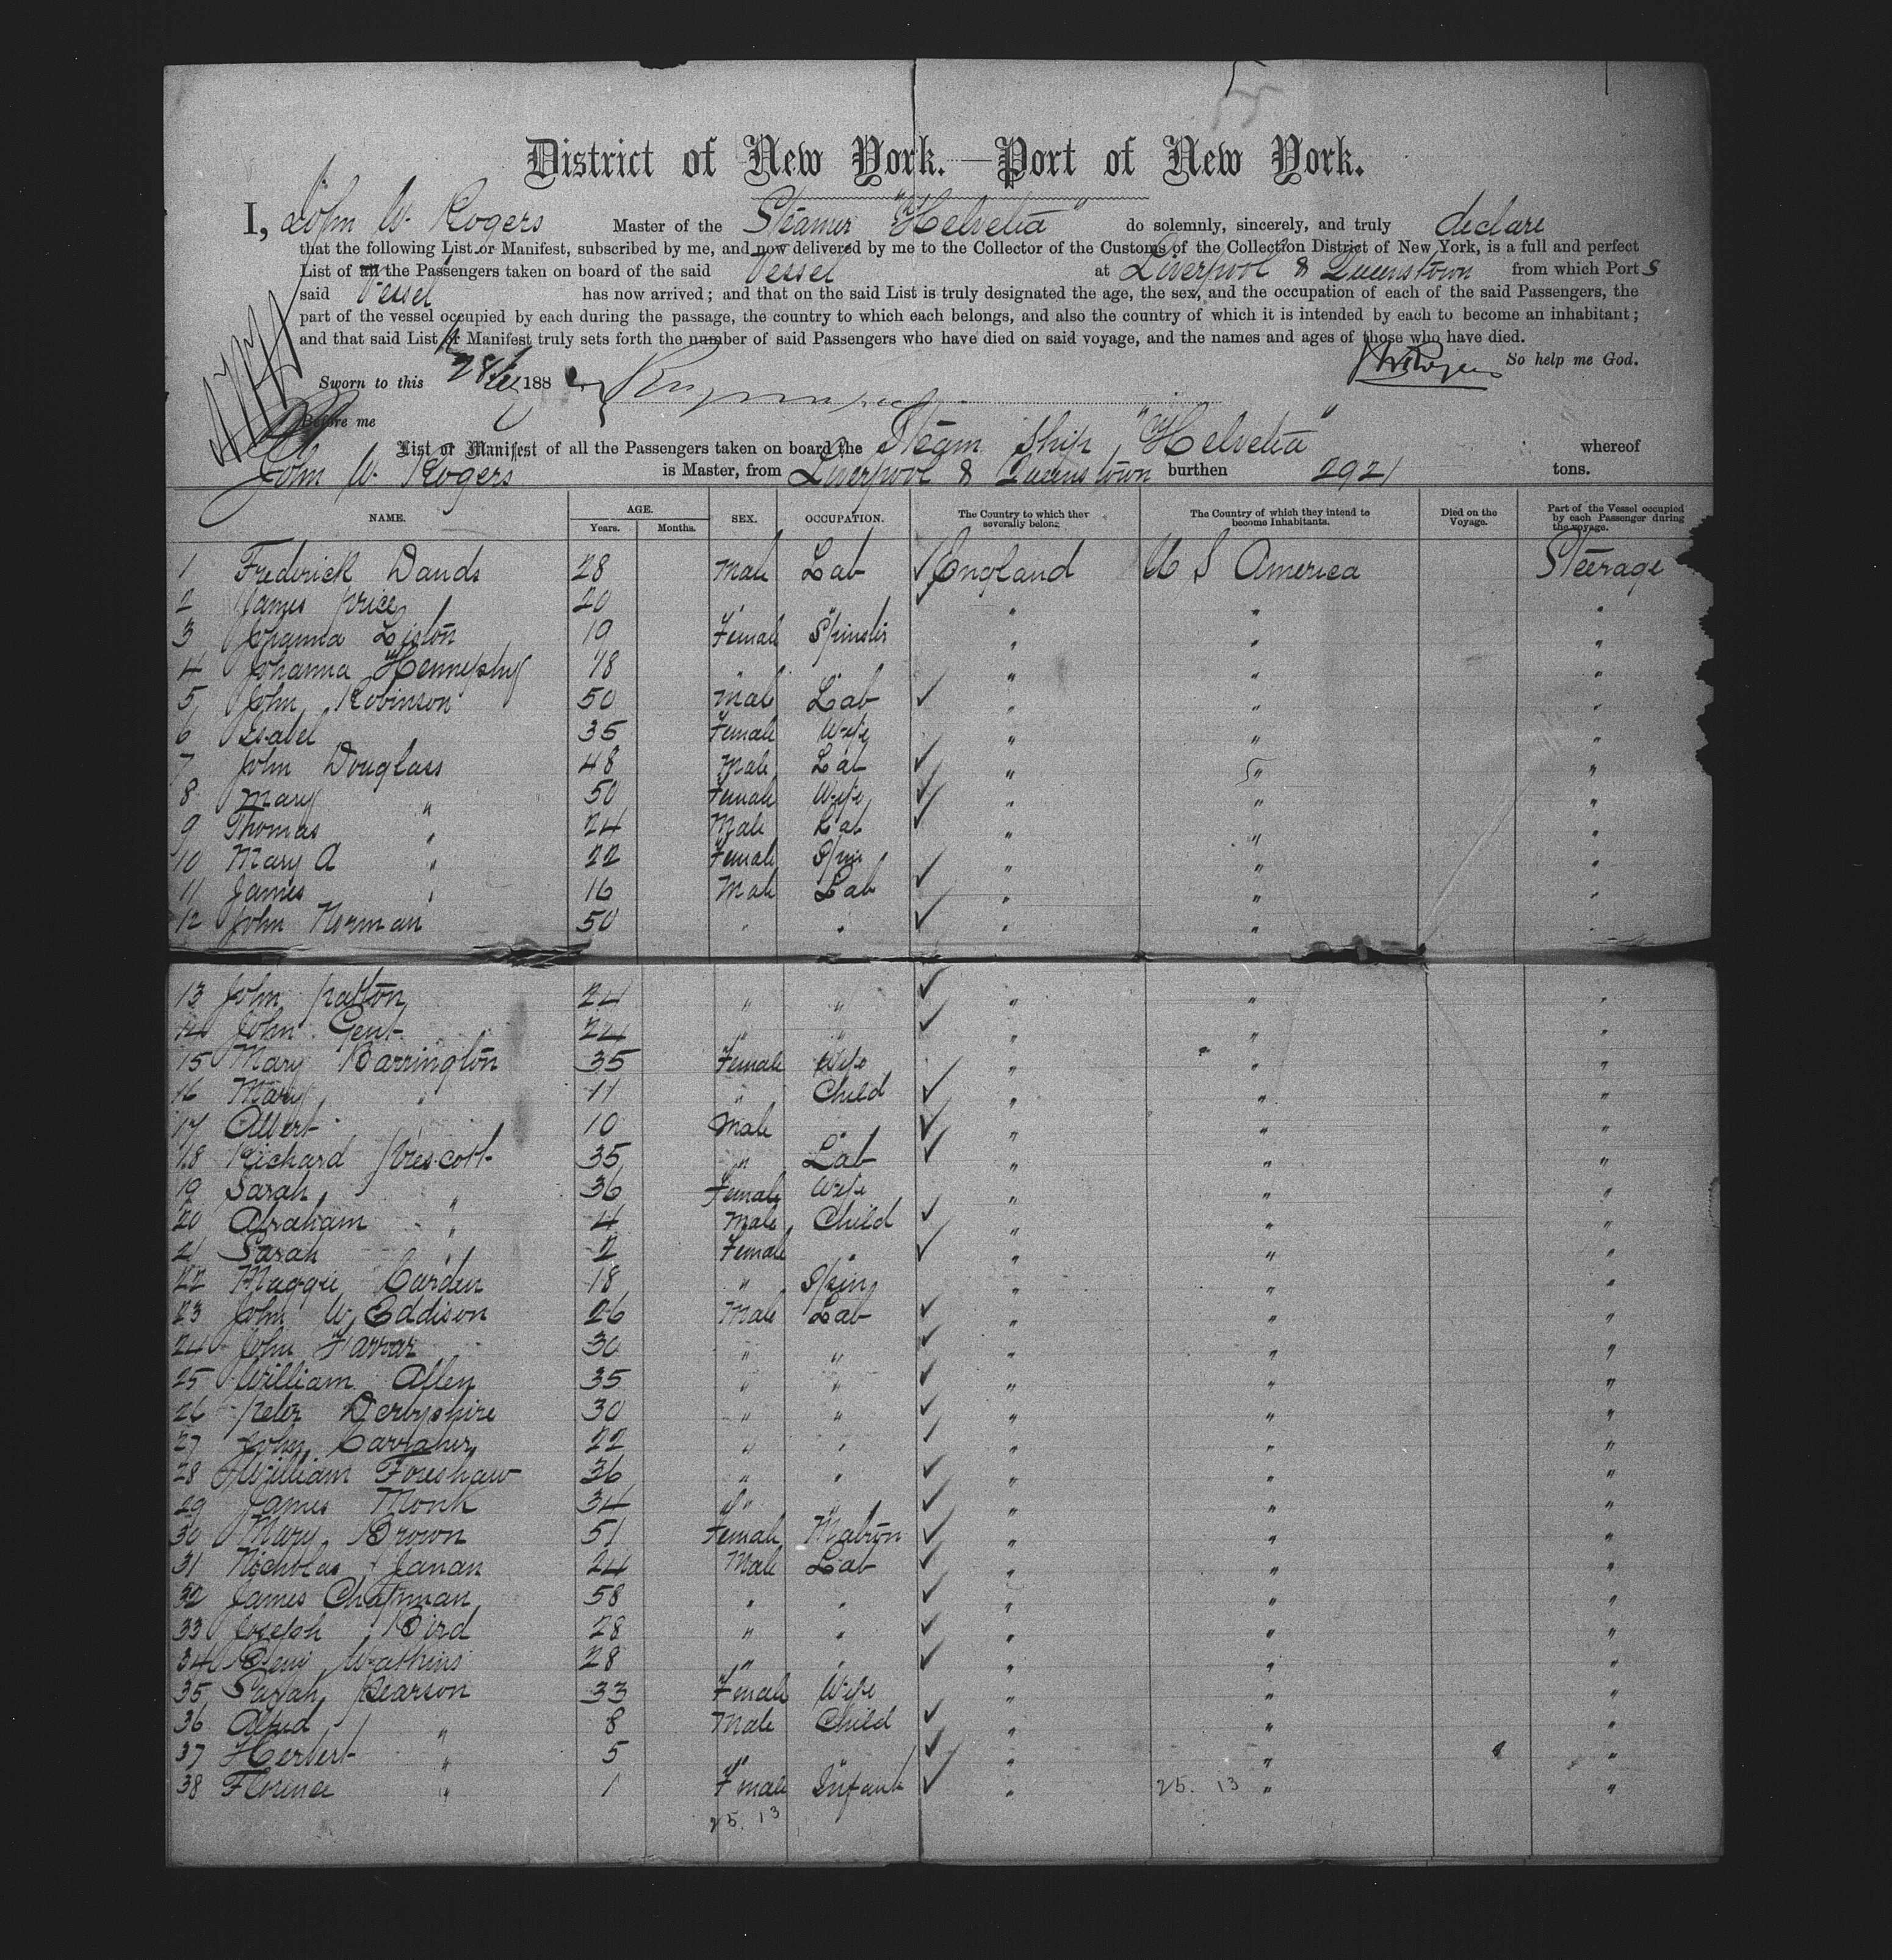 District of New York.—Port of New York.
I, John W. Rogers Master of the Steamer "Helvetia" do solemnly, sincerely, and truly declare
that the following List or Manifest, subscribed by me, and now delivered by me to the Collector of the Customs of the Collection District of New York, is a full and perfect
List of all the Passengers taken on board of the said Vessel at Liverpool & Queenstown from which Ports
said Vessel has now arrived; and that on the said List is truly designated the age, the sex, and the occupation of each of the said Passengers, the
part of the vessel occupied by each during the passage, the country to which each belongs, and also the country of which it is intended by each to become an inhabitant;
and that said List or Manifest truly sets forth the number of said Passengers who have died on said voyage, and the names and ages of those who have died.
So help me God.
Sworn to this 28 188
Before me
List or Manifest of all the Passengers taken on board the Steam Ship "Helvetia" whereof
John W. Rogers is Master, from Liverpool & Queenstown burthen 2921 tons.
NAME. AGE. Years. Months. SEX. OCCUPATION. The Country to which they severally belong. The Country of which they intend to become Inhabitants. Died on the Voyage. Part of the Vessel occupied by each Passenger during the voyage.
1 Frederick Dands 28 Male Lab ✓ England U S America Steerage
2 James Price 20 " " ✓ " " "
3 Johanna Liston 19 Female Spinster " " "
4 Johanna 18 " " " " "
5 John Robinson 50 Male Lab ✓ " " "
6 Isabel " 35 Female Wife " " "
7 John Douglass 48 Male Lab ✓ " " "
8 Mary " 50 Female Wife ✓ " " "
9 Thomas " 24 Male Lab ✓ " " "
10 Mary A " 22 Female Spin " " "
11 James " 16 Male Lab ✓ " " "
12 John Norman 50 " " ✓ " " "
13 John Patton 24 " " ✓ " " "
14 John Gent 24 " " ✓ " " "
15 Mary Barrington 35 Female Wife " " "
16 Mary " 11 " Child ✓ " " "
17 Albert " 10 Male " ✓ " " "
18 Richard Prescott 35 " Lab ✓ " " "
19 Sarah " 36 Female Wife " " "
20 Abraham " 4 Male Child ✓ " " "
21 Sarah " 2 Female " ✓ " " "
22 Maggie Carden 18 " Spin " " "
23 John W Eddison 26 Male Lab ✓ " " "
24 John Farrar 30 " " ✓ " " "
25 William Allen 35 " " ✓ " " "
26 Peter Derbyshire 30 " " ✓ " " "
27 John 22 " " ✓ " " "
28 William Foreshaw 36 " " ✓ " " "
29 James Monk 34 " " ✓ " " "
30 Mary Brown 51 Female Matron ✓ " " "
31 Nicholas Janan 24 Male Lab ✓ " " "
32 James Chapman 58 " " ✓ " " "
33 Joseph Bird 28 " " ✓ " " "
34 Benj Watkins 28 " " ✓ " " "
35 Sarah Pearson 33 Female Wife " " "
36 Alfred " 8 Male Child ✓ " " "
37 Herbert " 5 " " ✓ " " "
38 Florence " 1 Female Infant ✓ " 25. 13 " "
25. 13